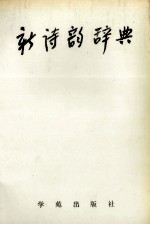 新诗韵辞典
学苑出版社